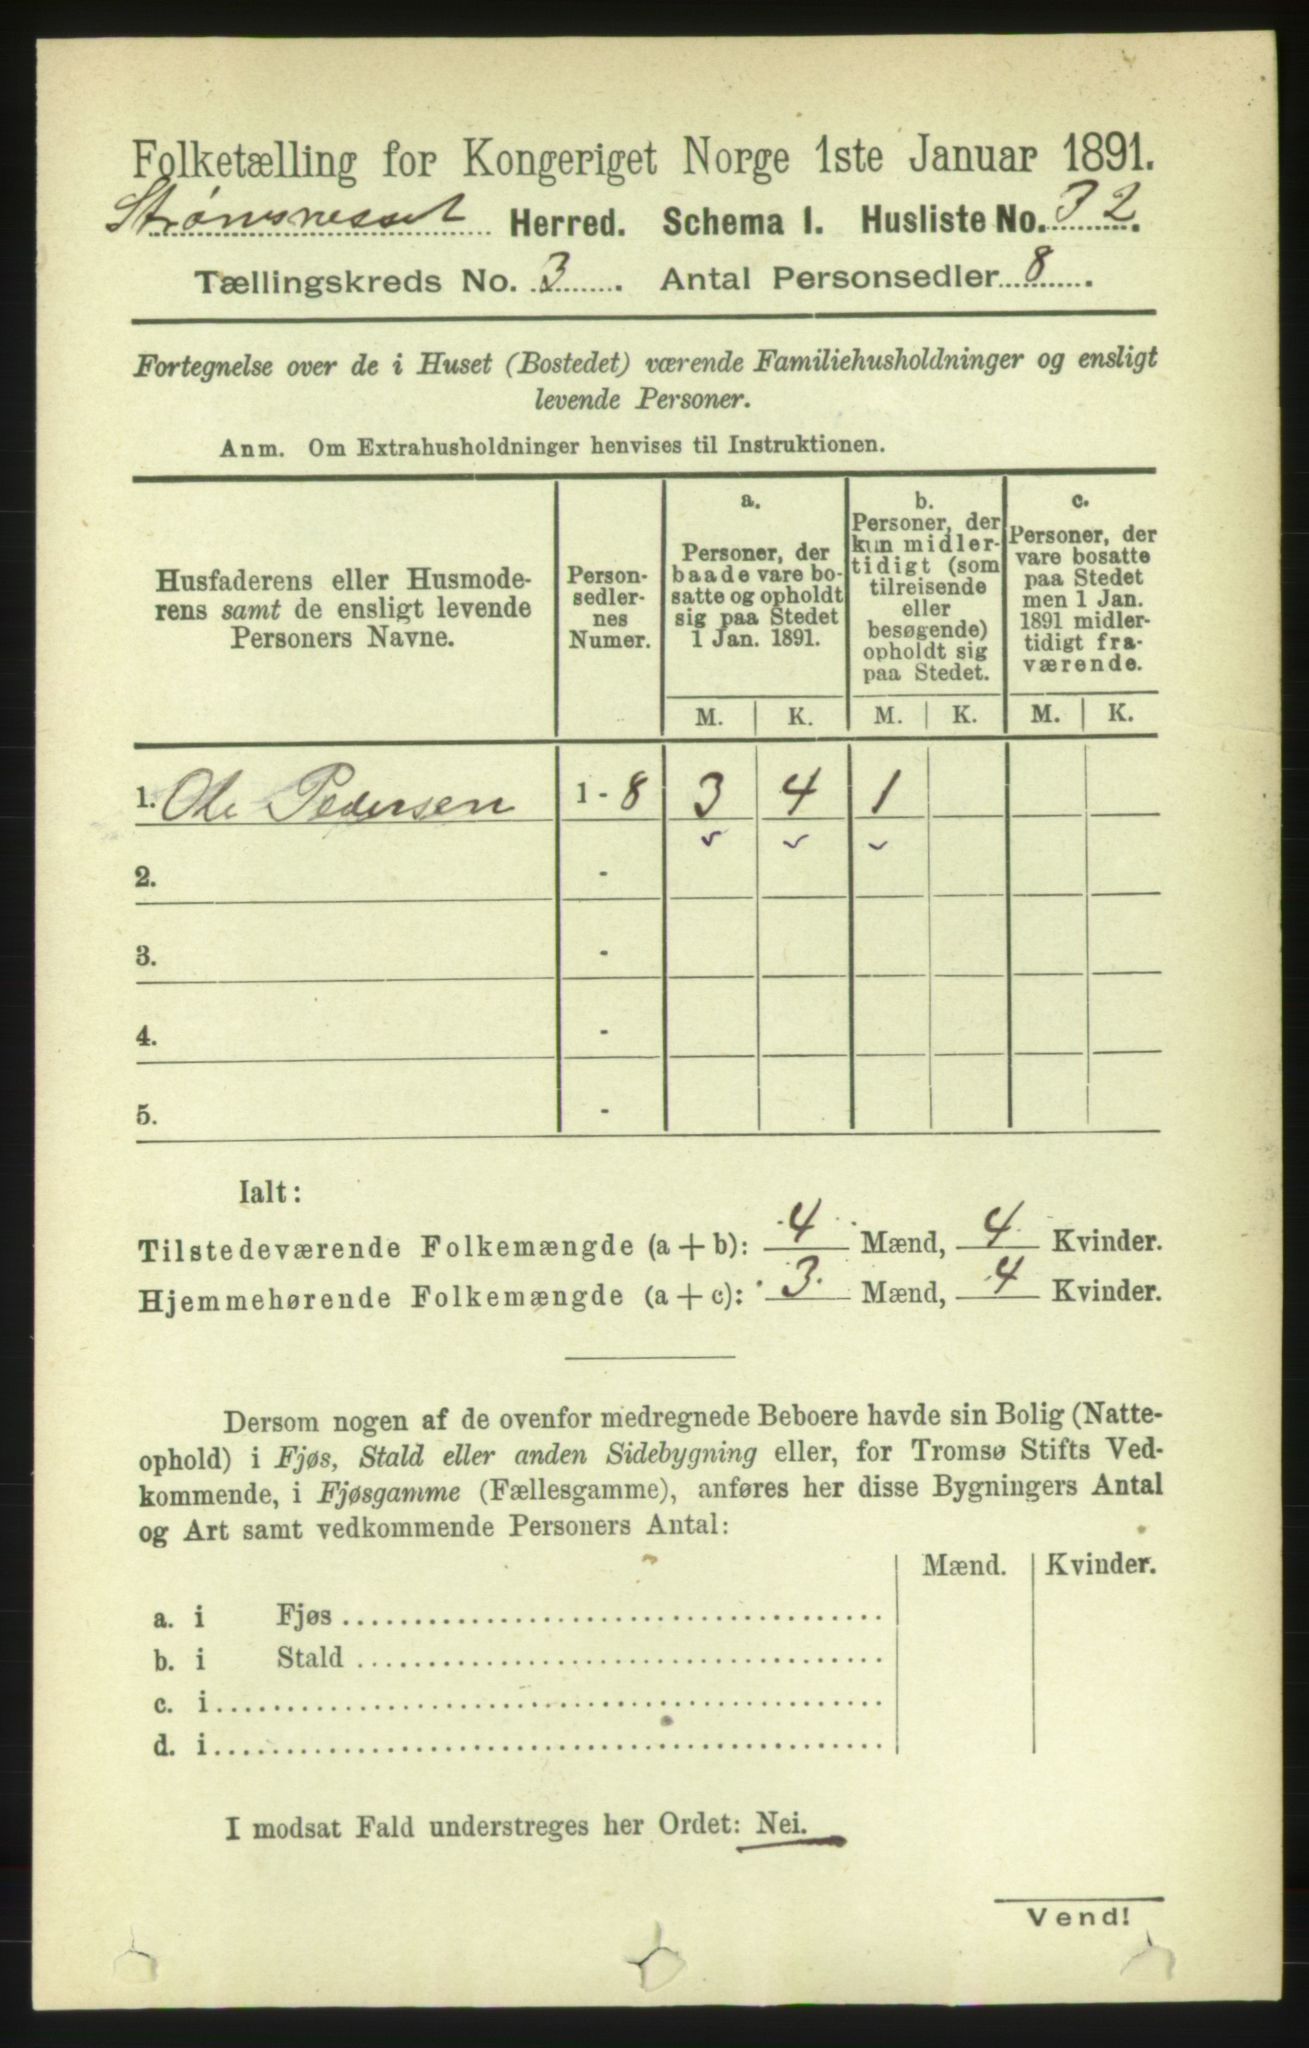 Folketælling for Kongeriget Norge 1ste Januar 1891.
Strømsnesset Herred. Schema I. Husliste No. 32.
Tællingskreds No. 3. Antal Personsedler 8.
Fortegnelse over de i Huset (Bostedet) værende Familiehusholdninger og ensligt
levende Personer.
Anm. Om Extrahusholdninger henvises til Instruktionen.
Husfaderens eller Husmode-
rens samt de ensligt levende
Personers Navne.
Person-
sedler-
nes
Numer.
a.
Personer, der
baade vare bo-
satte og opholdt
sig paa Stedet
1 Jan. 1891.
b.
Personer, der
kun midler-
tidigt (som
tilreisende
eller
besøgende)
opholdt sig
paa Stedet.
c.
Personer, der
vare bosatte
paa Stedet
men 1 Jan.
1891 midler-
tidigt fra-
værende.
M. K. M. K. M. K.
1. Ole Pedersen 1 - 8 3 4 1
2. -
3. -
4. -
5. -
Ialt:
Tilstedeværende Folkemængde (a + b): 4 Mænd, 4 Kvinder.
Hjemmehørende Folkemængde (a + c): 3 Mænd, 4 Kvinder.
Dersom nogen af de ovenfor medregnede Beboere havde sin Bolig (Natte-
ophold) i Fjøs, Stald eller anden Sidebygning eller, for Tromsø Stifts Ved-
kommende, i Fjøsgamme (Fællesgamme), anføres her disse Bygningers Antal
og Art samt vedkommende Personers Antal:
Mænd. Kvinder.
a. i Fjøs
b. i Stald
c. i
d. i
I modsat Fald understreges her Ordet: Nei.
Vend!